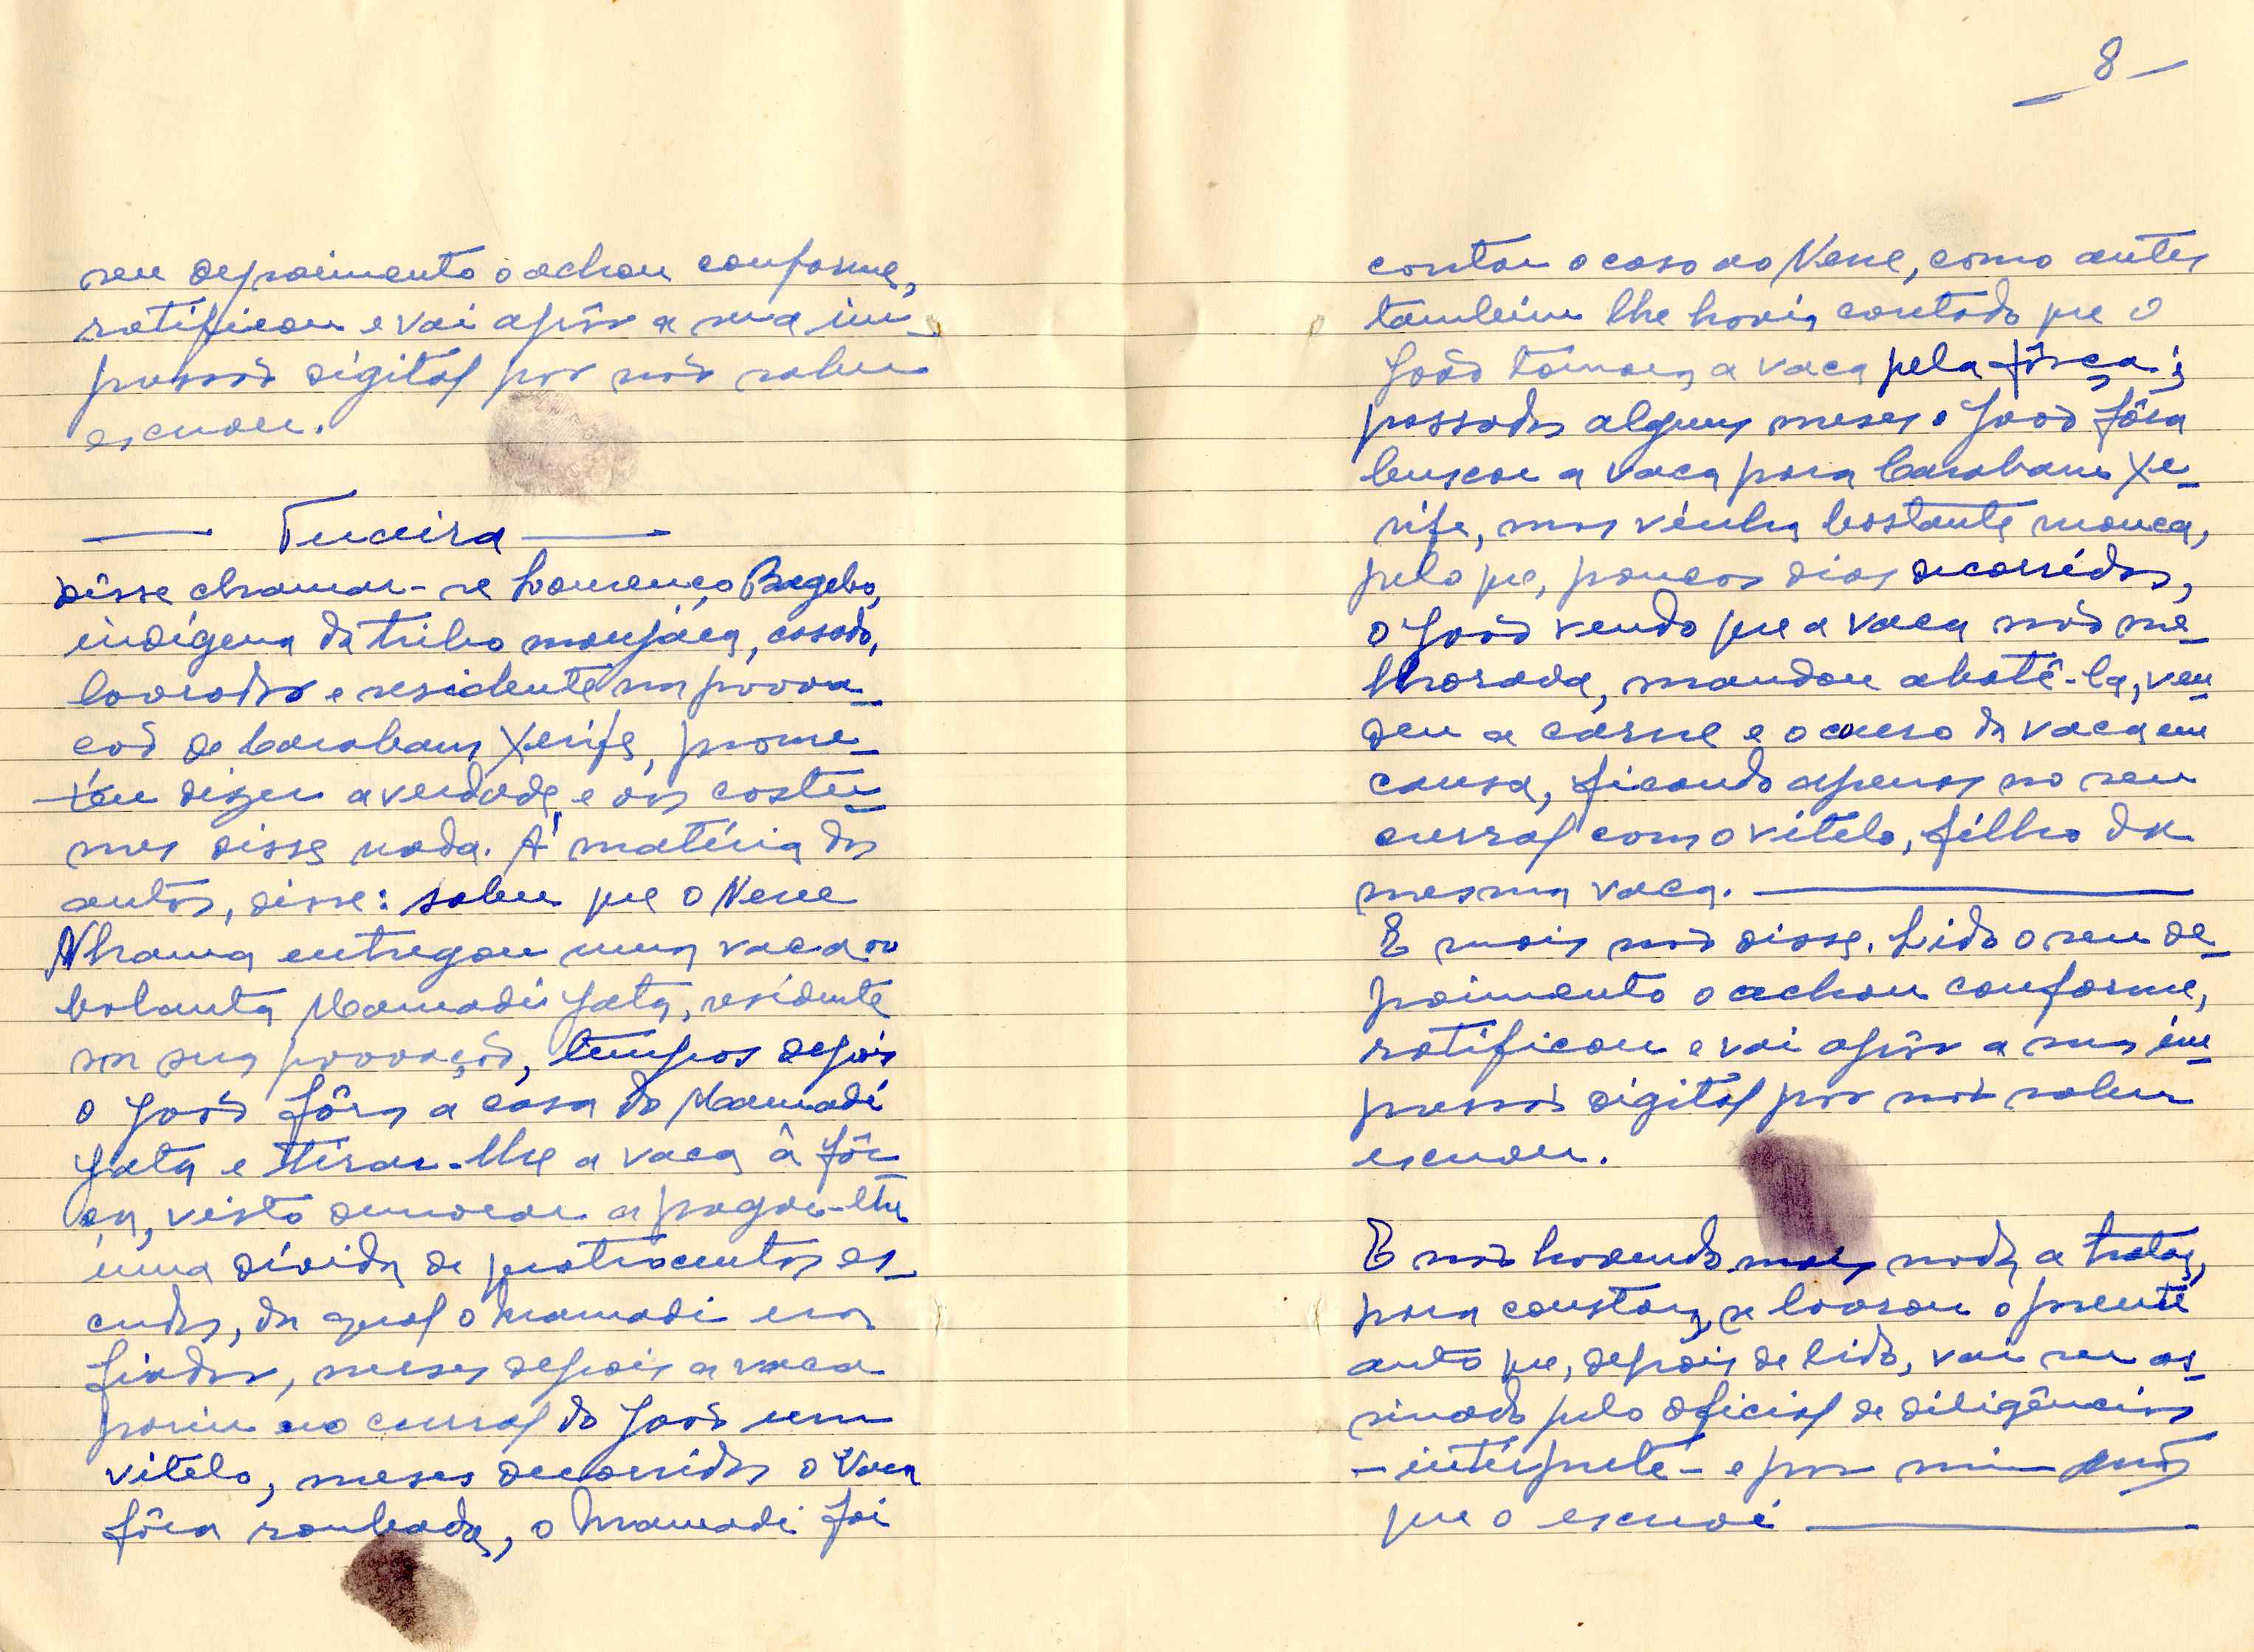 seu depoimento o achou conforme,
ratificou e vai apôr a sua im-
pressão digital por não saber
escrever.
Terceira
Disse chamar-se Lourenço Bagebo,
indígena da tribo manjaca, casado,
lavrador e residente na povoa-
ção de Carabane Xerife, prome-
teu dizer a verdade, e aos costu-
mes disse nada. Á matéria dos
autos, disse: saber que o Nene
Nhama entregou uma vaca ao
balanta Mamadi Jata, residente
na sua povoação, tempos depois
o João fôra a casa do Mamadi
Jata e tirar-lhe a vaca à fôr-
ça, visto demorar a pagar-lhe
uma dívida de quatrocentos es-
cudos, da qual o Mamadi era
fiador, meses depois a vaca
pariu no curral do João um
vitelo, meses decorridos a vaca
fôra roubada, o Mamadi foi
8
contar o caso ao Nene, como antes
também lhe havia contado que o
João tomara a vaca pela fôrça;
passados alguns meses o João fôra
buscar a vaca para Carabane Xe-
rife, mas vinha bastante manca,
pelo que, poucos dias decorridos,
o João vendo que a vaca não me-
lhorava, mandou abatê-la, ven-
deu a carne e o couro da vaca em
causa, ficando apenas no seu
curral com o vitelo, filho da
mesma vaca.
E mais não disse. Lido o seu de-
poimento o achou conforme,
ratificou e vai apôr a sua im-
pressão digital por não saber
escrever.
E não havendo mais nada a tratar,
para constar, se lavrou o presente
auto que, depois de lido, vai ser as-
sinado pelo oficial de diligências
-intérprete- e por mim
que o escrevi